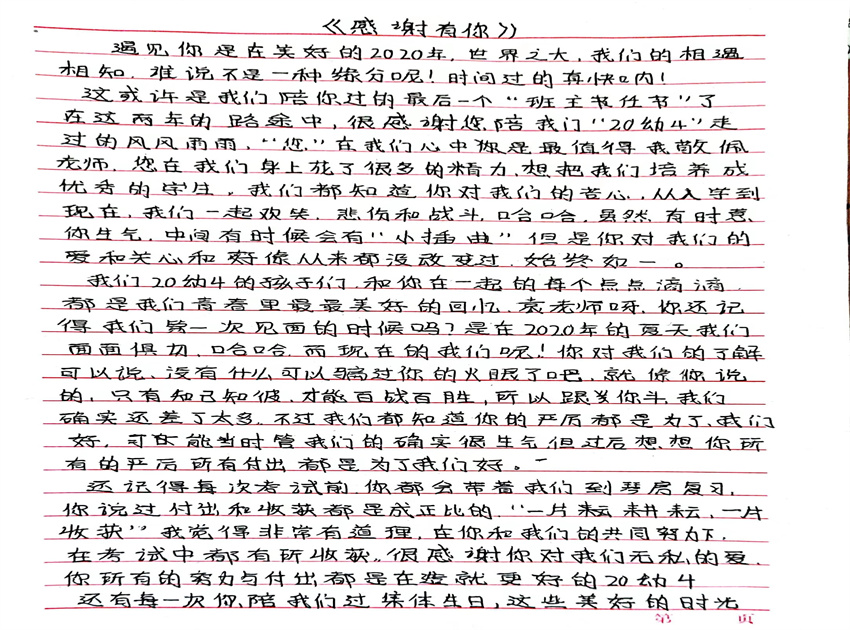 《感谢有你》
遇见你是在美好的2020年,世界之大,我们的相遇
相知,难说不是一种缘分呢!时间过的真快呐!
这或许是我们陪你过的最后一个“班主任节”了
在这两年的路途中,很感谢您陪我们“20幼4”走
过的风风雨雨,“您”在我们心中你是最值得我敬佩
老师.您在我们身上花了很多的精力,想把我们培养成
优秀的学生,我们都知道你对我们的苦心,从入学到
现在,我们一起欢笑.悲伤和战斗,哈哈,虽然有时惹
你生气.中间有时候会有“小插曲”但是你对我们的
爱和关心和好像从来都没改变过.始终如一。
我们20幼4的孩子们.和你在一起的每个点点滴滴
都是我们青春里最最美好的回忆.袁老师呀.你还记
得我们第一次见面的时候吗?是在2020年的夏天我们
面面俱切.哈哈.而现在的我们呢!你对我们的了解
可以说.没有什么可以瞒过你的火眼了吧.就像你说
的,只有知己知彼.才能百战百胜,所以跟当你斗.我们
确实还差了太多.不过我们都知道你的严厉都是为了我们
好.可能当时管我们的确实很生气但过后想想你所
有的严厉所有付出都是为了我们好。
还记得每次考试前.你都会带着我们到琴房复习,
你说过付出和收获都是成正比的.“一片耘耕耘,一片
收获”我觉得非常有道理,在你和我们的共同努力下,
在考试中都有所收获..很感谢你对我们无私的爱.
你所有的努力与付出都是在造就更好的20幼4
还有每一次你陪我们过集体生日,这些美好的时光
第 页